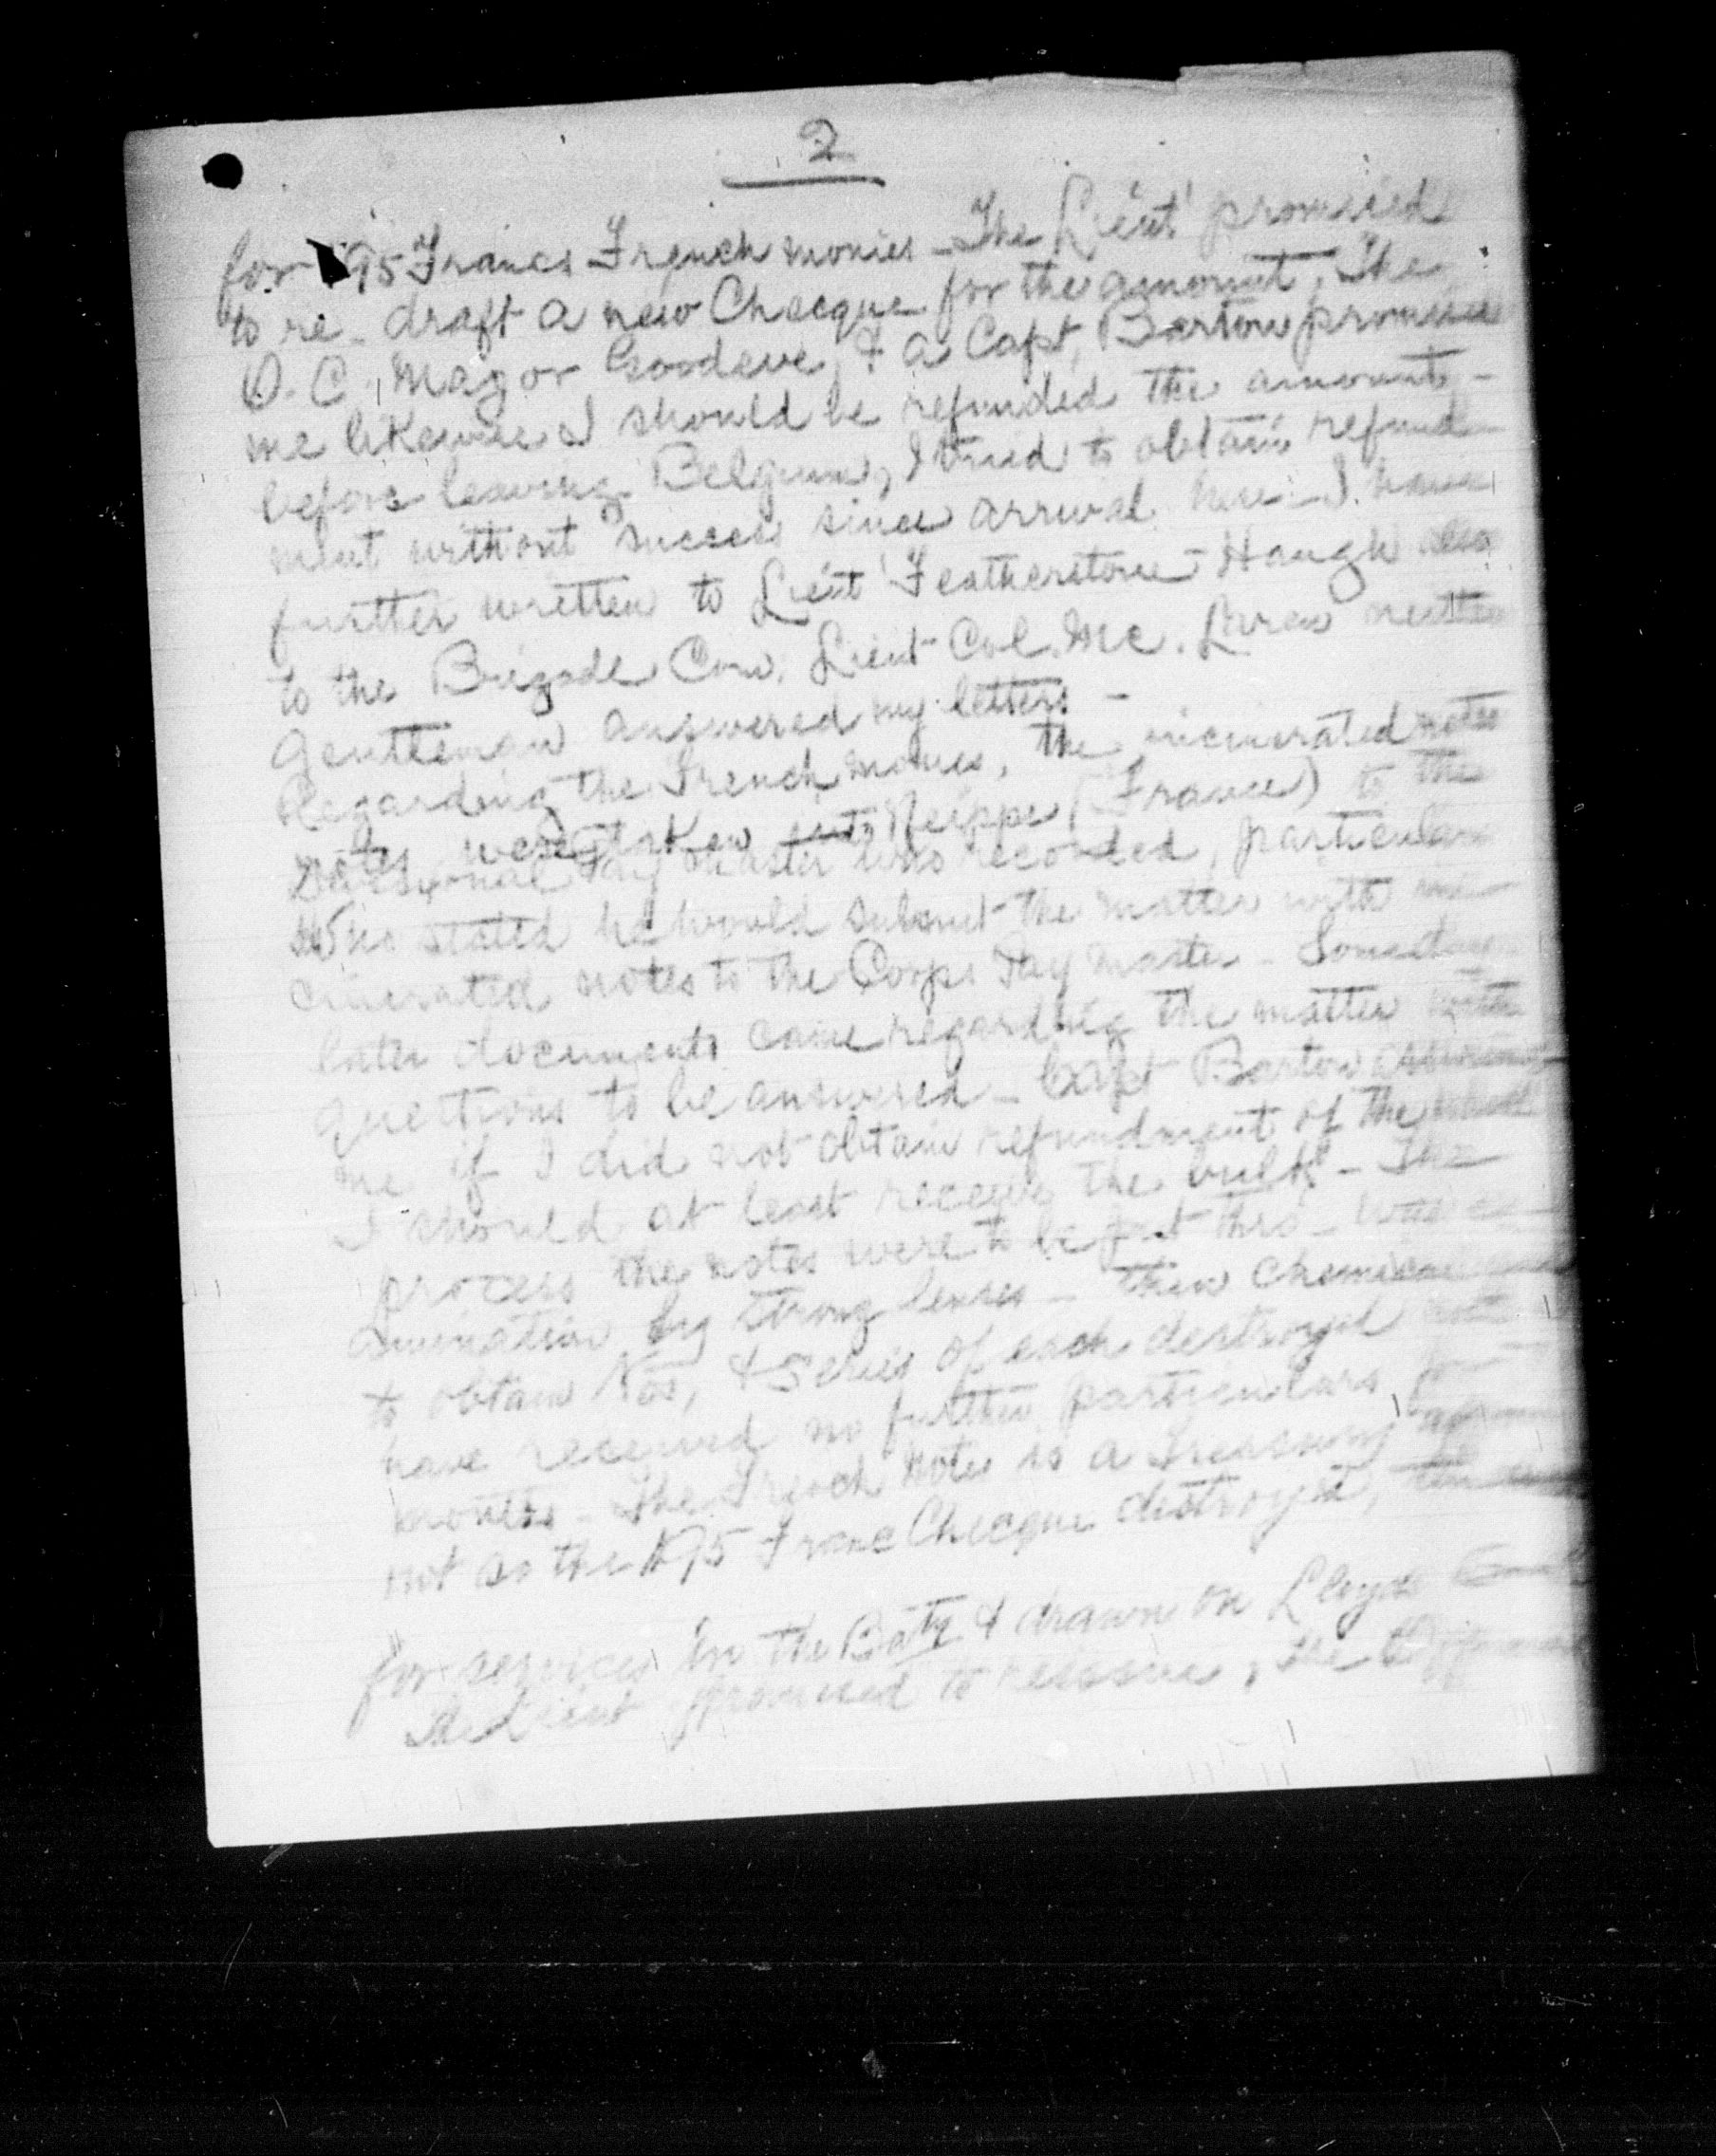 2
for 195 Francs French monies - The Lieut' promised
to re-draft a new Checque for the amount, The
O.C. Major Goodeve, & a Capt, Barton promised
me likewise I should be refunded the amount -
before leaving Belgium, I tried to obtain refund
ment without success since arrival here - I have
further written to Lieut' Featherstone-Haugh also
to the Brigade Com. Lieut-Col. Mc. Laren neither
Gentleman answered my letters -
Regarding the French monies, the incinerated notes
Notes were taken Neippe (France) to the
Divisional Pay Master who recorded, particulars
Who stated he would submit the matter with
cinerated notes to the Corps Pay Master - Some days
later documents came regarding the matter with
questions to be answered - Capt Barton assuring
me if I did not obtain refundment of the whole
I should at least receive the bulk - The
process the notes were to be put thro - was ex
amination by strong lenses - then Chemical
to obtain Nos, & Series of each destroyed note
have received no further particulars for
months - The French Notes is a Treasury
not so the 195 Franc Checque destroyed,
for services in the Baty & drawn on Lloyds
The Lieut promised to reissue, the